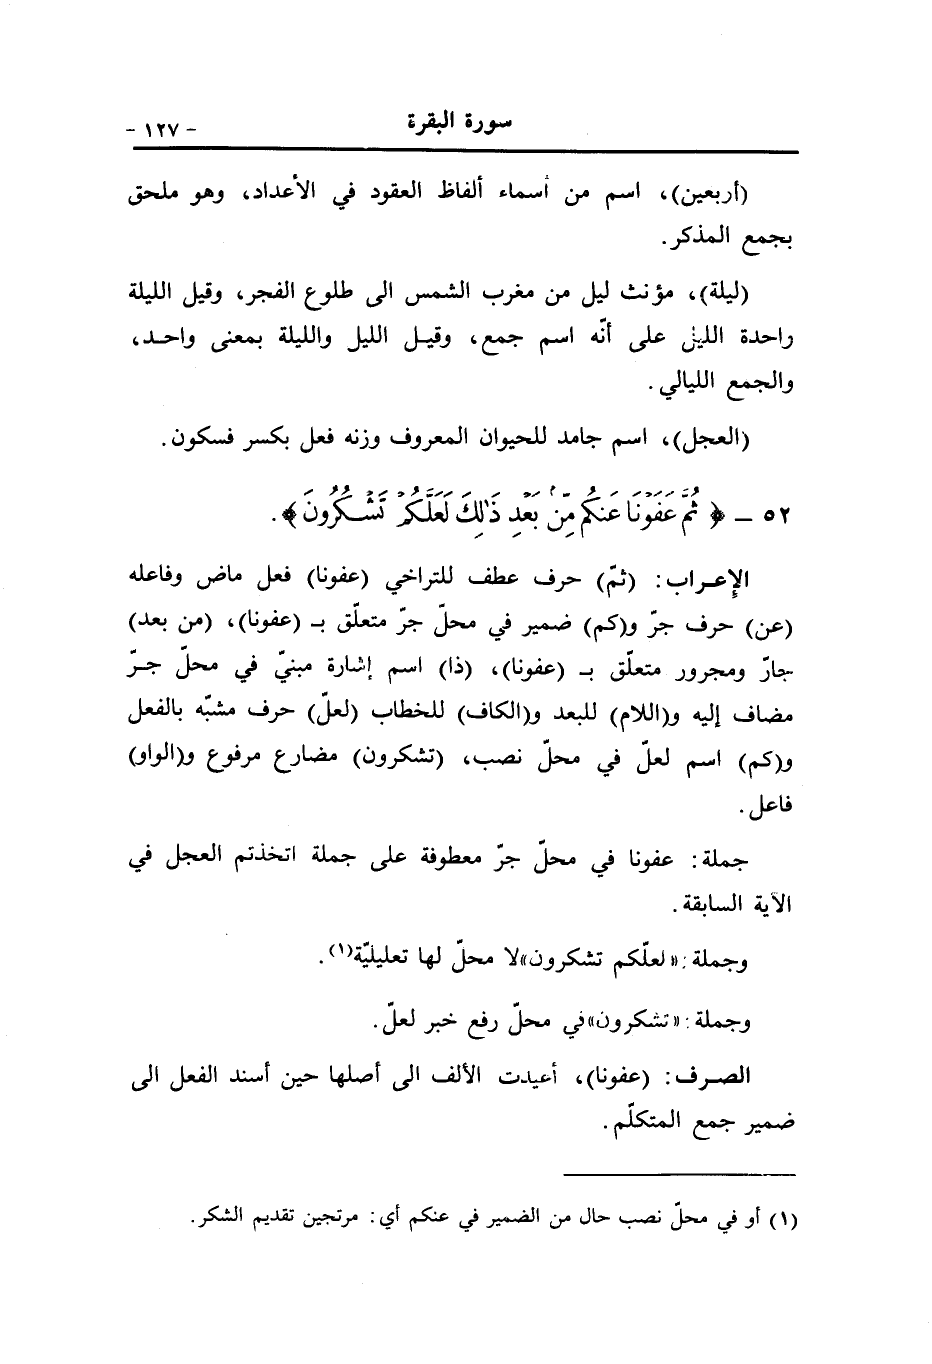 سورة البقرة
- ١٢٧ -
(أربعين)، اسم من أسماء ألفاظ العقود في الأعداد، وهو ملحق
بجمع المذكر.
(ليلة)، مؤنث ليل من مغرب الشمس الى طلوع الفجر، وقيل الليلة
واحدة الليل على أنّه اسم جمع، وقيل الليل والليلة بمعنى واحد،
والجمع الليالي.
(العجل)، اسم جامد للحيوان المعروف وزنه فعل بكسر فسكون.
٥٢ ـ ﴿ ثُمَّ عَفَوْنَا عَنكُم مِّنۢ بَعْدِ ذَٰلِكَ لَعَلَّكُمْ تَشْكُرُونَ ﴾.
الإعراب: (ثمّ) حرف عطف للتراخي (عفونا) فعل ماض وفاعله
(عن) حرف جرّ و(كم) ضمير في محلّ جرّ متعلّق بـ (عفونا)، (من بعد)
جارّ ومجرور متعلّق بـ (عفونا)، (ذا) اسم إشارة مبنيّ في محلّ جرّ
مضاف إليه و(اللام) للبعد و(الكاف) للخطاب (لعلّ) حرف مشبّه بالفعل
و(كم) اسم لعلّ في محلّ نصب، (تشكرون) مضارع مرفوع و(الواو)
فاعل.
جملة: عفونا في محلّ جرّ معطوفة على جملة اتخذتم العجل في
الآية السابقة.
وجملة: «لعلّكم تشكرون» لا محلّ لها تعليليّة(١).
وجملة: «تشكرون» في محلّ رفع خبر لعلّ.
الصرف: (عفونا)، أعيدت الألف الى أصلها حين أسند الفعل الى
ضمير جمع المتكلّم.
(١) أو في محلّ نصب حال من الضمير في عنكم أي: مرتجين تقديم الشكر.